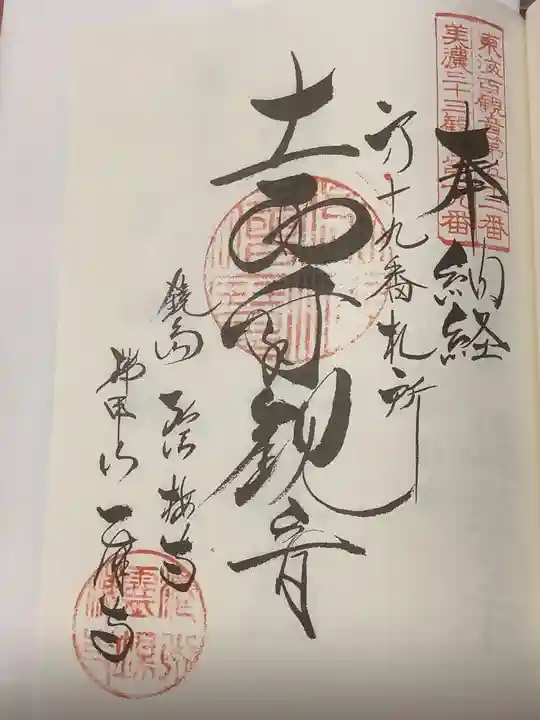 東海百観音第五十二番
美濃三十三観音第十九番
奉納経
第十九番札所
十一面千手観音
鏡島 弘法 梅寺
瑞甲山 乙津寺